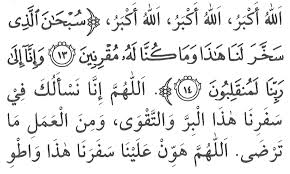 اللهُ أَكْبَرُ، اللهُ أَكْبَرُ، اللهُ أَكْبَرُ، ﴿سُبْحَانَ الَّذِى
سَخَّرَ لَنَا هَٰذَا وَمَا كُنَّا لَهُ مُقْرِنِينَ ﴿١٣﴾ وَإِنَّا إِلَىٰ
رَبِّنَا لَمُنقَلِبُونَ ﴿١٤﴾﴾ اللَّهُمَّ إِنَّا نَسْأَلُكَ فِي
سَفَرِنَا هَذَا الْبِرَّ وَالتَّقْوَى، وَمِنَ الْعَمَلِ مَا
تَرْضَى. اللَّهُمَّ هَوِّنْ عَلَيْنَا سَفَرَنَا هَذَا وَاطْوِ